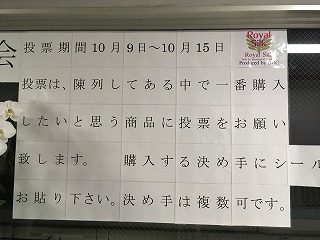 会
投票期間10月9日～10月15日
Royal
Silk
Royal Silk
投票は、陳列してある中で一番購入
したいと思う商品に投票をお願い
致します。 購入する決め手にシール
お貼り下さい。決め手は複数可です。